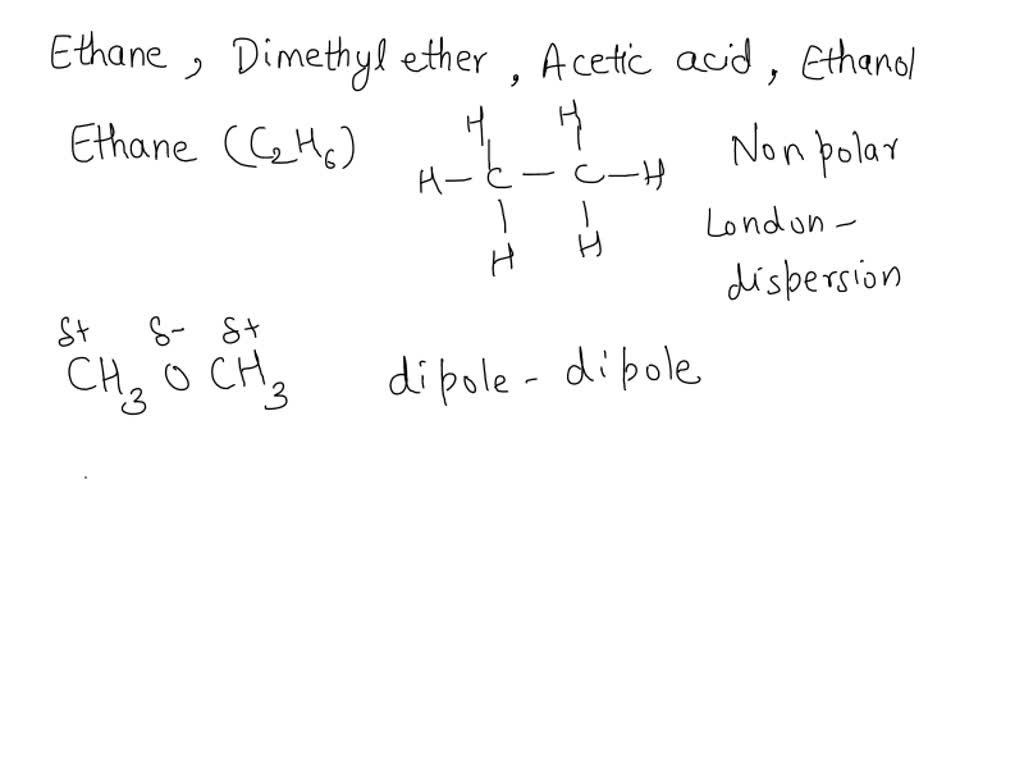 Ethane, Dimethyl ether, Acetic acid, Ethanol
Ethane (C₂H₆)
H H
H-C-C-H
H H
Nonpolar
London-
dispersion
δ+ δ- δ+
CH₃ O CH₃
dipole-dipole